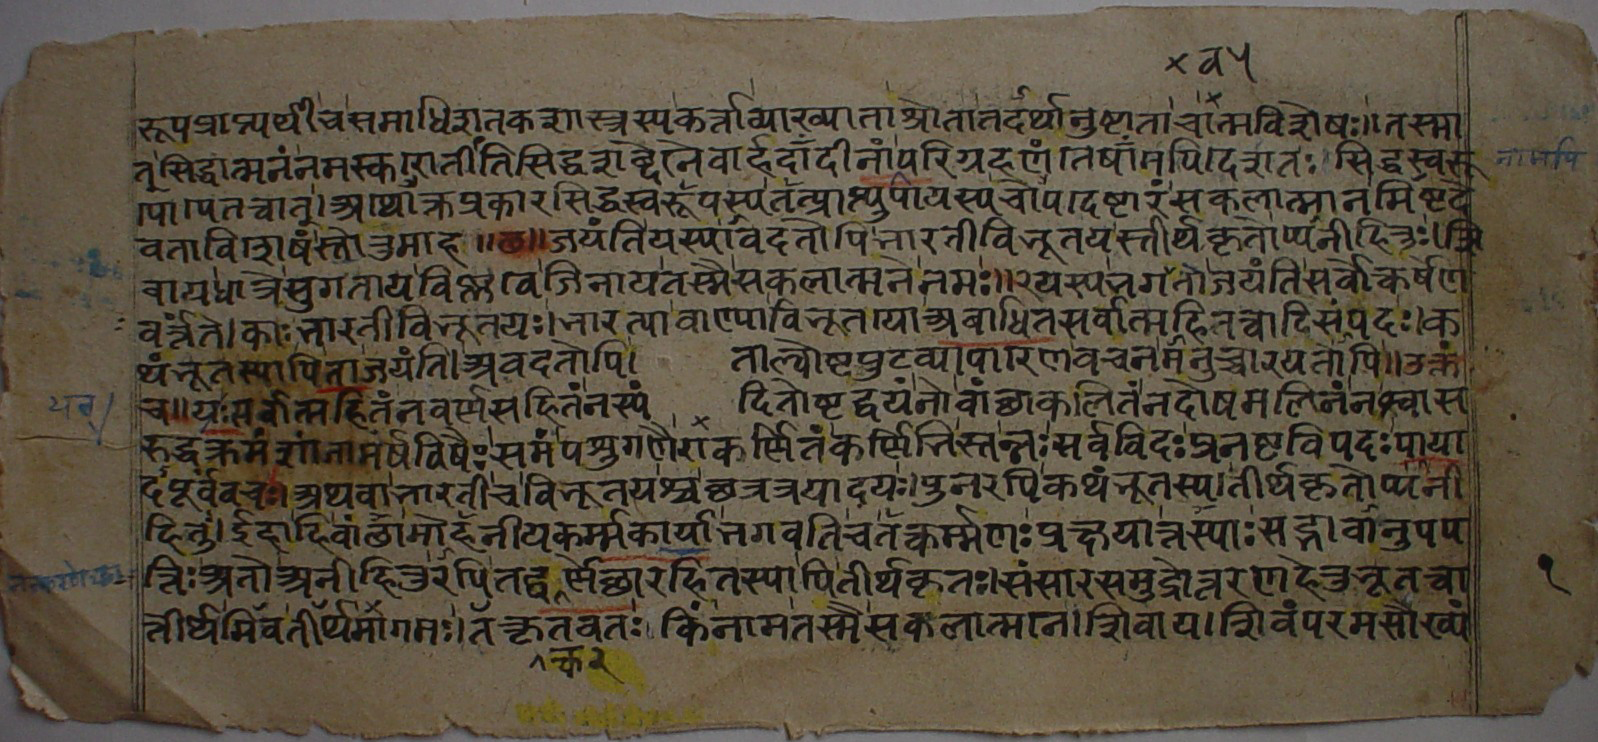 × व ५
रूपप्राप्त्यर्थी च समाधिशतकशास्त्रस्य कर्त्ता व्याख्याता श्रोता तदर्थानुष्टाता चात्मविशेषः॥तस्मा
त् सिद्धात्मनं नमस्करोतीति सिद्धशब्देनैवार्हदादीनां परिग्रहणं।तेषामपि।देशतः सिद्धस्वरू
पोपेतत्वात्।अथोक्तप्रकारसिद्धस्वरूपस्य तत्प्राप्त्युपायस्य चोपदेष्टारं सकलात्मानमिष्टदे
वताविशेषं स्तोतुमाह ॥छ॥ जयंति यस्यावदतोपि भारतीविभूतयस्तीर्थकृतोप्यनीहितुः।शि
वाय धात्रे सुगताय विष्णवे जिनाय तस्मै सकलात्मने नमः॥२यस्य भगवतो जयंति सर्वोत्कर्षेण
वर्त्तंते।काः भारतीविभूतयः।भारत्या वाण्या विभूतयो अबाधितसर्वात्महितत्वादिसंपदः।क
थंभूतस्यापि ता जयंति।अवदतोपि। ताल्वोष्टपुटव्यापारेण वचनमनुच्चारयतोपि॥उक्तं
च॥यः सर्वात्महितं न वर्ण्णसहितं न स्पंदितोष्टद्वयं नो वांछाकलितं न दोषमलिनं न श्वास
रुद्धक्रमं शांतामर्षविषैः समं पशुगणैराकर्ण्णितं कर्ण्णिभिस्तन्नः सर्वविदः प्रनष्टविपदः पाया
दपूर्वं वचः।अथवा भारती च विभूतयश्च छत्रत्रयादयः।पुनरपि कथंभूतस्य।तीर्थकृतोप्यनी
हितुः।ईहा हि वांछा मोहनीयकर्म्मकार्या भगवति च तत्कर्म्मणः प्रक्षयात्तस्याः सद्भावानुपप
त्तिः अतो अनीहितुरपि तद्रूर्णेछारहितस्यापि तीर्थकृतः।संसारसमुद्रोत्तरणहेतुभूतत्वा
त्तीर्थमिव तीर्थमागमः।तत्कृतवतः। किं नाम तस्मै सकलात्मने।शिवाय।शिवं परमसौख्यं
नामपि
१